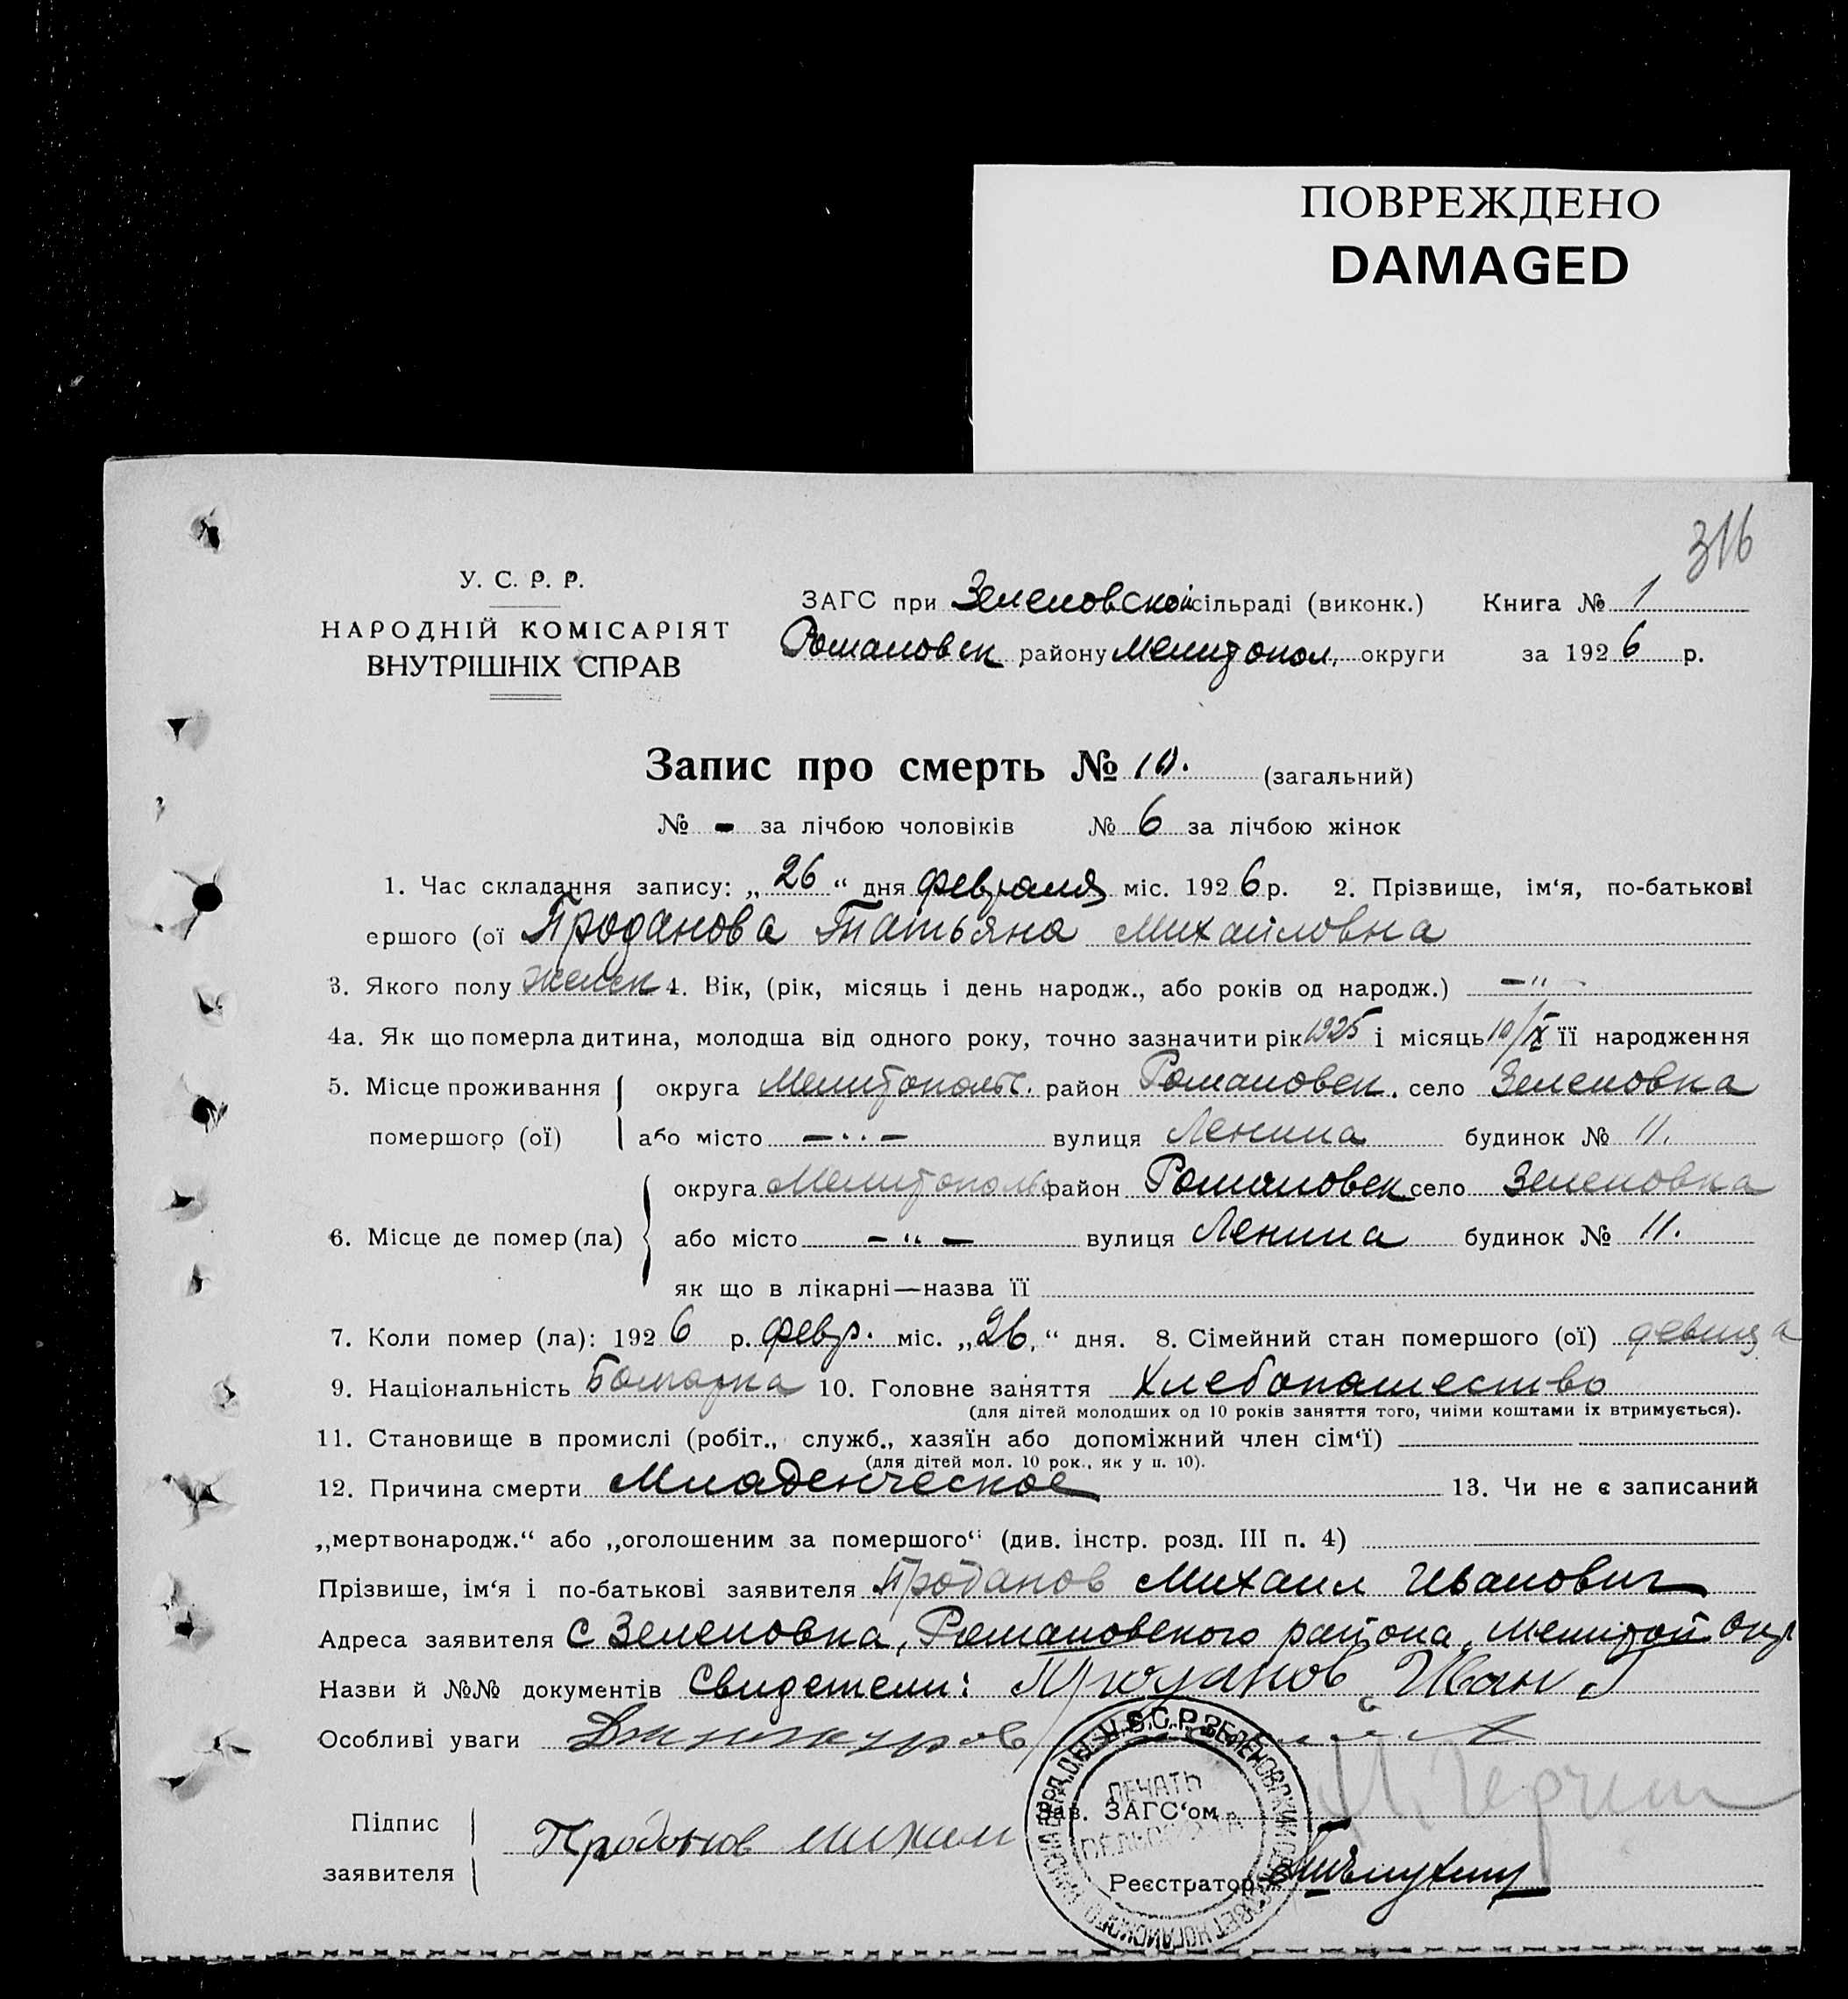 ПОВРЕЖДЕНО
DAMAGED
316
У. С. Р. Р.
НАРОДНІЙ КОМІСАРІЯТ
ВНУТРІШНІХ СПРАВ
ЗАГС при Зеленовской сільраді (виконк.) Книга № 1
Романовск району Мелитопол. округи за 1926 р.
Запис про смерть № 10. (загальний)
№ - за лічбою чоловіків № 6 за лічбою жінок
1. Час складання запису: „26“ дня февраля міс. 1926 р. 2. Прізвище, ім‘я, по-батькові
ершого (ої Проданова Татьяна Михайловна
3. Якого полу женск 4. Вік, (рік, місяць і день народж., або років од народж.) -"-
4а. Як що померла дитина, молодша від одного року, точно зазначити рік 1925 і місяць 10/IX її народження
5. Місце проживання округа Мелитопольс. район Романовск. село Зеленовка
помершого (ої) або місто -..- вулиця Ленина будинок № 11.
округа Мелитопольс район Романовск село Зеленовка
6. Місце де помер (ла) або місто -"- вулиця Ленина будинок № 11.
як що в лікарні—назва її
7. Коли помер (ла): 1926 р. февр. міс. „26.“ дня. 8. Сімейний стан помершого (ої) девица
9. Національність Болгарка 10. Головне заняття Хлебопашество
(для дітей молодших од 10 років заняття того, чиїми коштами їх втримується).
11. Становище в промислі (робіт., служб., хазяїн або допоміжний член сім‘ї)
(для дітей мол. 10 рок., як у п. 10).
12. Причина смерти Младенческое 13. Чи не є записаний
„мертвонародж.“ або „оголошеним за помершого“ (див. інстр. розд. III п. 4)
Прізвише, ім‘я і по-батькові заявителя Проданов Михаил Иванович
Адреса заявителя с Зеленовка, Романовского района, Мелитой окр
Назви й №№ документів Свидетели: Проданов Иван
Особливі уваги
Підпис
заявителя Проданов михаил
Зав. ЗАГС‘ом
Реєстратор
ПЕЧАТЬ